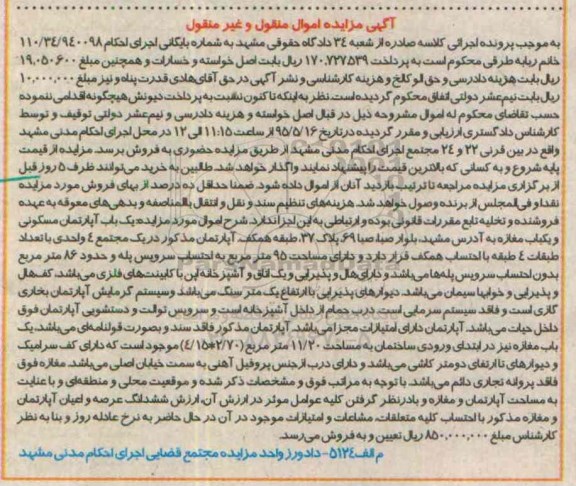 آگهی مزایده اموال منقول و غیر منقول
به موجب پرونده اجرائی کلاسه صادره از شعبه ٣٤ دادگاه حقوقی مشهد به شماره بایگانی اجرای احکام ١١٠/٣٤/٩٤٠٠٩٨
خانم ربابه طرقی محکوم است به پرداخت ١٧٠.٧٢٧.٥٣٩ ریال بابت اصل خواسته و خسارات و همچنین مبلغ ١٩.٠٥٠.٦٠٠
ریال بابت هزینه دادرسی و حق الوکالخ و هزینه کارشناسی و نشر آگهی در حق آقای هادی قدرت پناه و نیز مبلغ ١٠.٠٠٠.٠٠٠
ریال بابت نیم عشر دولتی اتفاق محکوم گردیده است. نظر به اینکه تا کنون نسبت به پرداخت دیونش هیچگونه اقدامی ننموده
حسب تقاضای محکوم له اموال مشروحه ذیل در قبال اصل خواسته و هزینه دادرسی و نیم عشر دولتی توقیف و توسط
کارشناس دادگستری ارزیابی و مقرر گردیده در تاریخ ٩٥/٥/١٦ از ساعت ١١:١٥ الی ١٢ در محل اجرای احکام مدنی مشهد
واقع در بین قرنی ٢٢ و ٢٤ مجتمع اجرای احکام مدنی مشهد از طریق مزایده حضوری به فروش برسد. مزایده از قیمت
پایه شروع و به کسانی که بالاترین قیمت را پیشنهاد نمایند واگذار خواهد شد. طالبین به خرید می توانند ظرف ٥ روز قبل
از برگزاری مزایده مراجعه تا ترتیب بازدید آنان از اموال داده شود. ضمنا حداقل ده درصد از بهای فروش مورد مزایده
نقدا و فی المجلس از برنده وصول خواهد شد. هزینه های تنظیم سند و نقل و انتقال بالمناصفه و بدهی های معوقه به عهده
فروشنده و تخلیه تابع مقررات قانونی بوده و ارتباطی به این اجرا ندارد. شرح اموال مورد مزایده یک باب آپارتمان مسکونی
و یکباب مغازه به آدرس مشهد، بلوار صبا صبا ٦٩، پلاک ٣٧ طبقه همکف. آپارتمان مذکور در یک مجتمع ٤ واحدی با تعداد
طبقات ٤ طبقه با احتساب همکف قرار دارد و دارای مساحت ٩٥ متر مربع به احتساب سرویس پله و حدود ٨٦ متر مربع
بدون احتساب سرویس پله ها می باشد. دارای هال و پذیرایی و یک اتاق و آشپزخانه اپن با کابینت های فلزی می باشد. کف هال
و پذیرایی و خوابها سیمان می باشد. دیوارهای پذیرایی با ارتفاع یک متر سنگ می باشد و سیستم گرمایش آپارتمان بخاری
گازی است و فاقد سیستم سرمایی است. درب حمام از داخل آشپزخانه است و سرویس توالت و دستشویی آپارتمان فوق
داخل حیات می باشد. آپارتمان دارای امتیازات مجزا می باشد. آپارتمان مذکور فاقد سند و بصورت قولنامه ای می باشد. یک
باب مغازه نیز در ابتدای ورودی ساختمان به مساحت ١١/٢٠ متر مربع (٢/٧٠*٤/١٥) موجود است که دارای کف سرامیک
و دیوارهای تا ارتفای دومتر کاشی می باشد و دارای درب از جنس پروفیل آهنی به سمت خیابان اصلی می باشد. مغازه فوق
فاقد پروانه تجاری دائم می باشد. با توجه به مراتب فوق و مشخصات ذکر شده و موقعیت محلی و منطقه ای و با عنایت
به مساحت آپارتمان و مغازه و بادر نظر گرفتن کلیه عوامل موثر در ارزش آن، ارزش ششدانگ عرصه و اعیان آپارتمان
و مغازه مذکور با احتساب کلیه متعلقات، مشاعات و امتیازات موجود در آن در حال حاضر به نرخ عادله روز و بنا به نظر
کارشناس مبلغ ٨٥٠.٠٠٠.٠٠٠ ریال تعیین و به فروش می رسد.
م الف ٥١٢٤- دادورز واحد مزایده مجتمع قضایی اجرای احکام مدنی مشهد